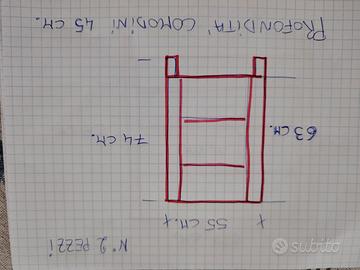 PROFONDITA' COMODINI 45 CM.
63 CM.
74 CM.
55 CM.
N° 2 PEZZI
subito